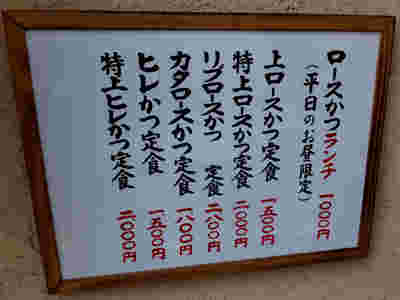 ロースかつランチ 一000円
(平日のお昼限定)
上ロースかつ定食 一五00円
特上ロースかつ定食 二000円
リブロースかつ 定食 二八00円
カタロースかつ定食 一八00円
ヒレかつ定食 一五00円
特上ヒレかつ定食 二000円